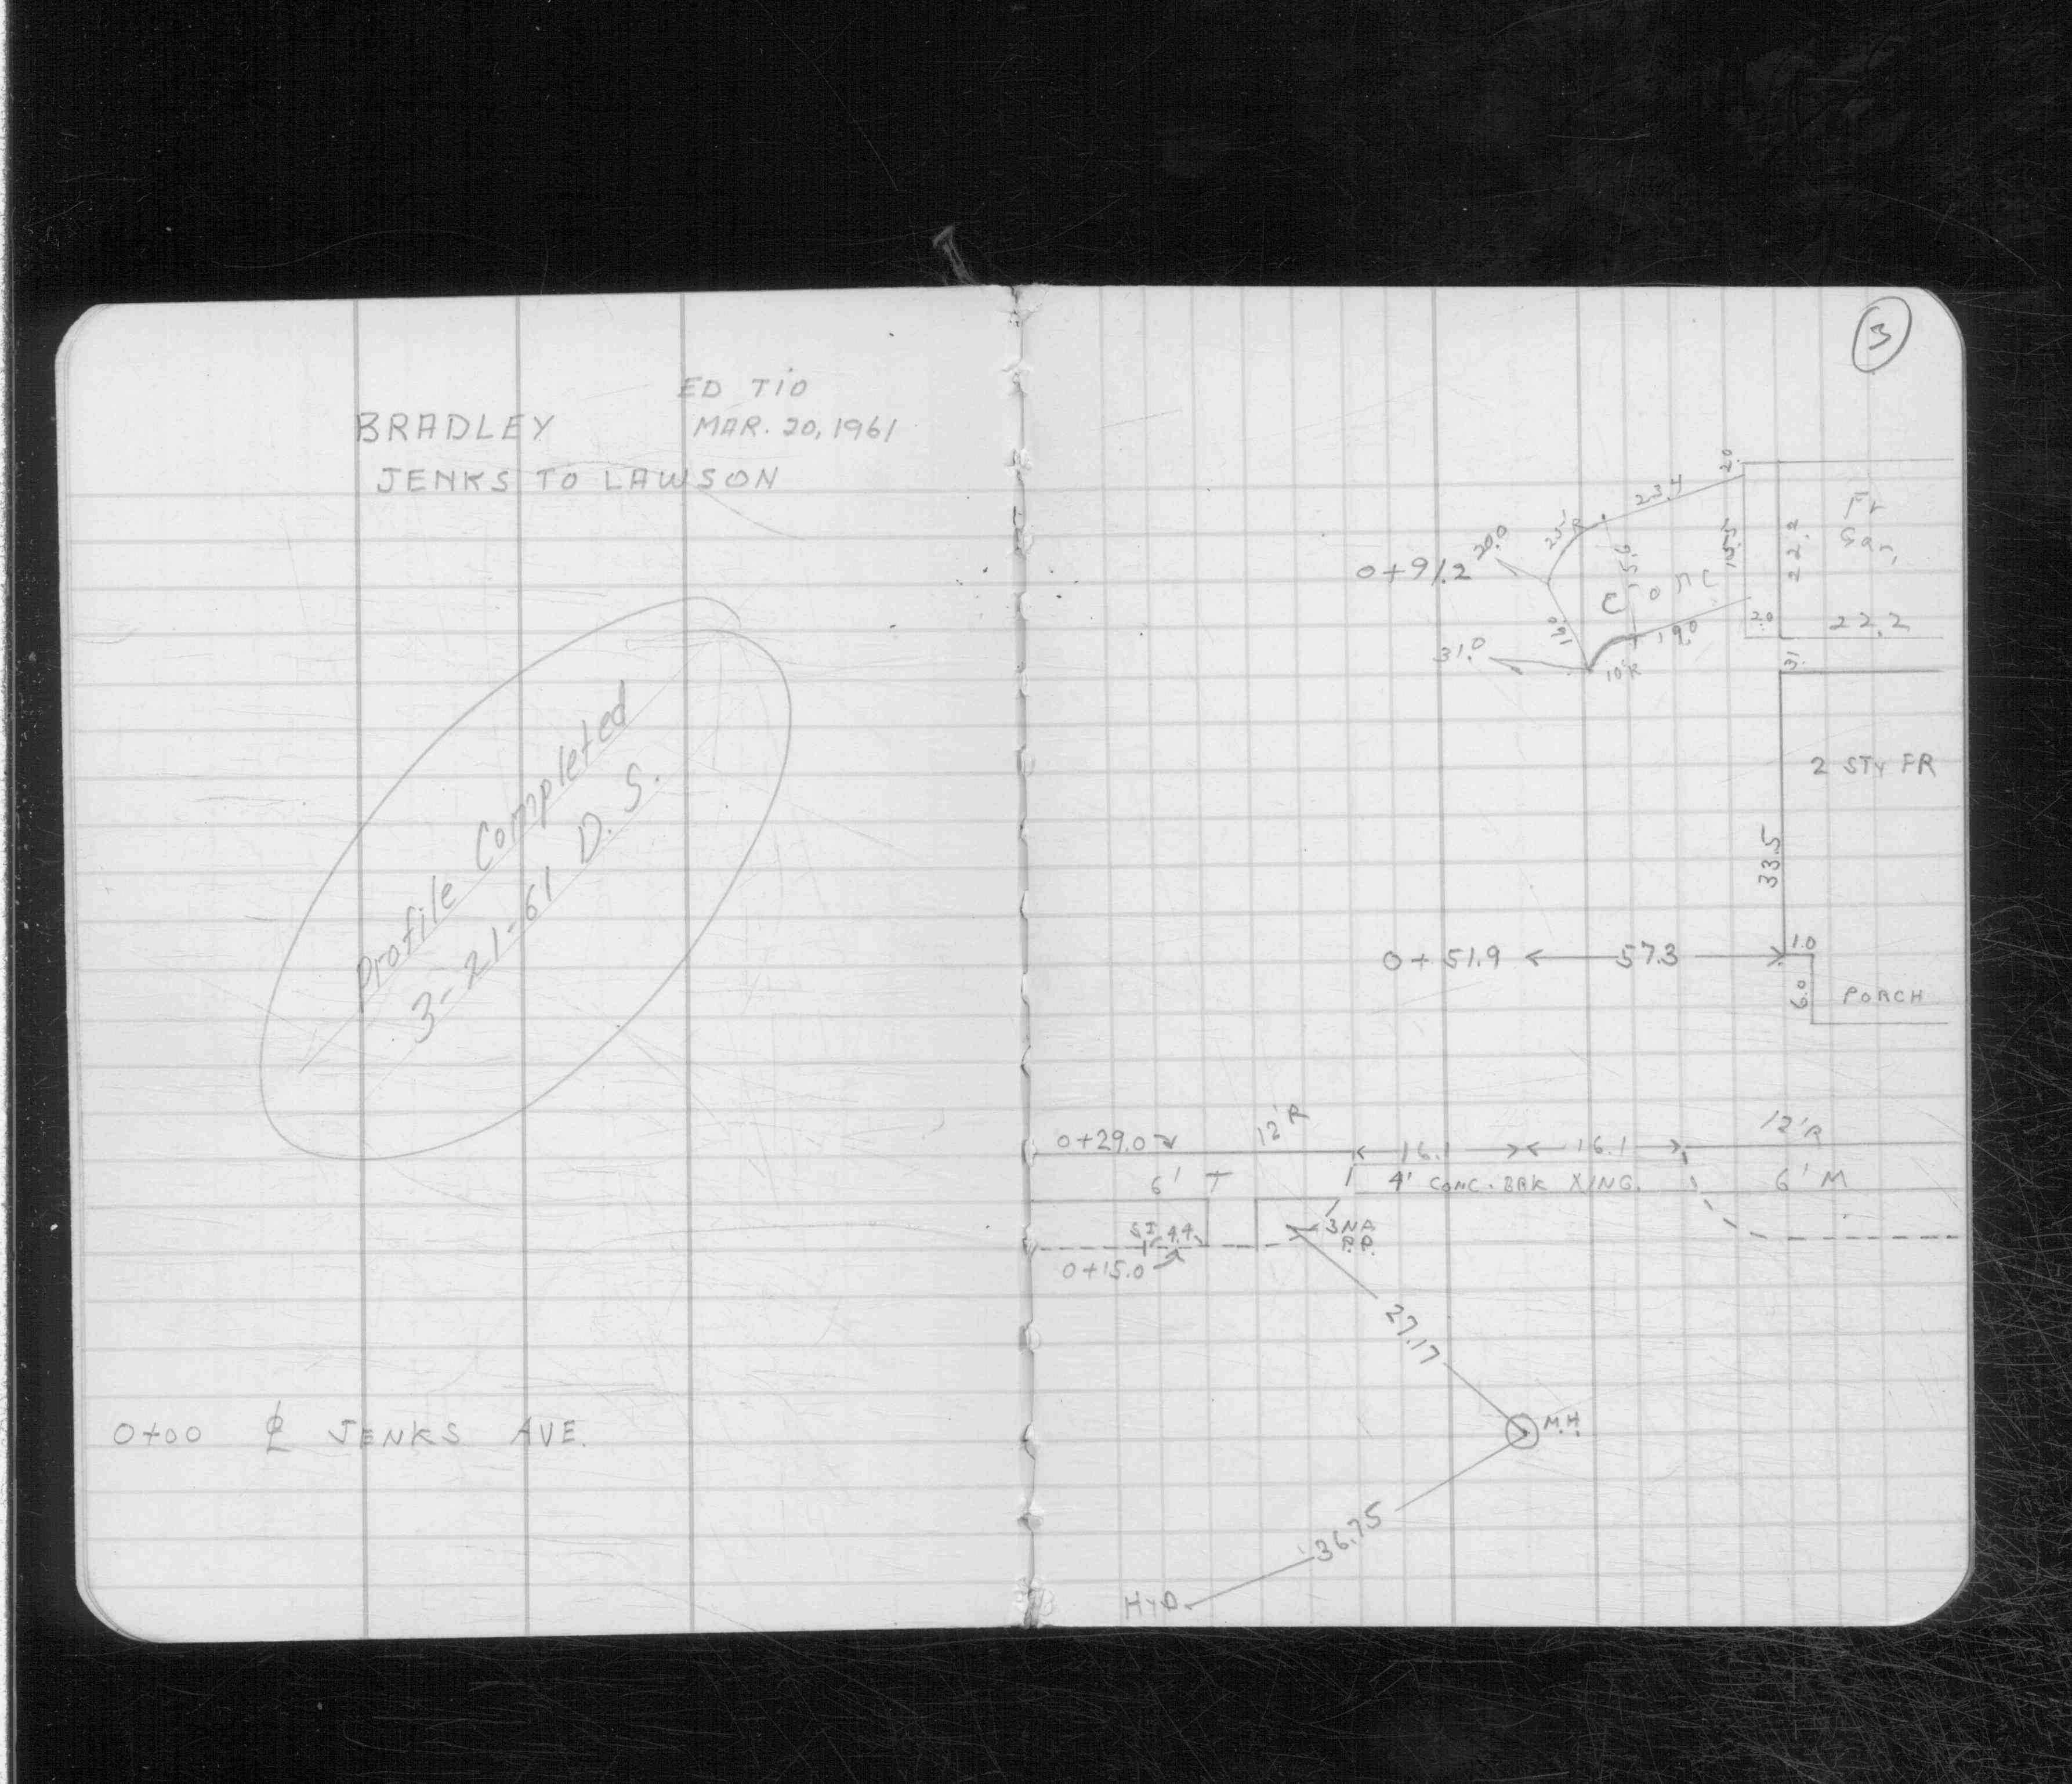 ED TIO
BRADLEY MAR. 20, 1961
JENKS TO LAWSON
Profile Completed
3-21-61 D. S.
0+00 ℄ JENKS AVE.
3
20.
23.4
Fr
Gar,
25'R
20.0
0+91.2
15.0
15.5
22.2
CONC
19.0
20.
22.2
31.0
19.0
10'R
31.
2 STY FR
33.5
0+51.9 57.3
1.0
6.0 PORCH
0+29.0 12'R 16.1 16.1 12'R
6' T 4' CONC. BRK XING. 6' M
S.I. 4.4 3NA
P.P.
0+15.0
27.17
M.H.
36.75
HYD.